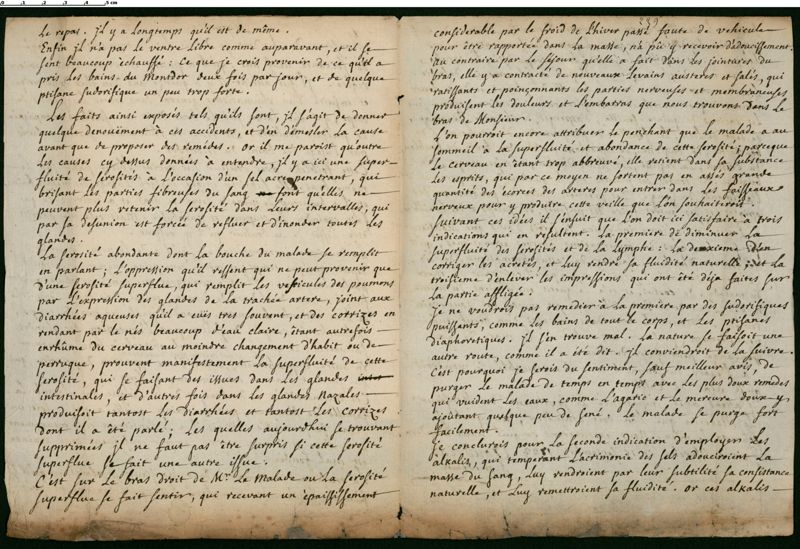 le repas. jl y a longtemps qu'il est de même.
Enfin jl n'a pas le ventre libre comme auparavant, et il se
sent beaucoup échauffé : ce que je crois provenir de ce qu'il a
pris les bains du Montdor deux fois par jour, et de quelque
ptisane sudorifique un peu trop forte.
Les faits ainsi exposés tels qu'ils sont, jl s'agit de donner
quelque denouëment à ces accidents, et d'en démesler la cause
avant que de proposer des remedes. or il me paroist qu'outre
les causes cy dessus données à entendre, jl y a ici une super-
fluité de serosités à l'occasion d'un sel acre penetrant, qui
brisant les parties fibreuses du sang font qu'elles ne
peuvent plus retenir la serosité dans leurs intervalles, qui
par sa desunion est forcée de refluer et d'inonder toutes les
glandes.
La serosité abondante dont la bouche du malade se remplit
en parlant ; l'oppression qu'il ressent qui ne peut provenir que
d'une serosité superflue, qui remplit les vesicules des poumons
par l'expression des glandes de la trachée artere, joint aux
diarrhées aqueuses qu'il a euës tres souvent, et des corrizes en
rendant par le nés beaucoup d'eau claire, étant autresfois
enrhûmé du cerveau au moindre changement d'habit ou de
perruque, prouvent manifestement la superfluité de cette
serosité, qui se faisant des issues dans les glandes
intestinales, et d'autres fois dans les glandes nazales
produisoit tantost les diarrhées et tantost les corrizes
dont il a été parlé ; les quelles aujourdhui se trouvant
supprimées jl ne faut pas être surpris si cette serosité
superflue se fait une autre issue.
C'est sur le bras droit de Mr. le malade ou la serosité
superflue se fait sentir, qui recevant un épaississement
considerable par le froid de l'hiver passé faute de vehicule
pour être rapportée dans la masse, n'a pû y recevoir d'adoucissement.
au contraire par le sejour qu'elle a fait dans les jointures du
bras, elle y a contracté de nouveaux levains austeres et salés, qui
ratissants et poinçonnants les parties nerveuses et membraneuses
produisent les douleurs et l'embarras que nous trouvons dans le
bras de Monsieur.
L'on pourroit encore attribuer le penchant que le malade a au
sommeil à la superfluité et abondance de cette serosité ; parceque
le cerveau en étant trop abbreuvé, elle retient dans sa substance
les esprits, qui par ce moyen ne sortent pas en assés grande
quantité des écorces des arteres pour entrer dans les faisseaux
nerveux pour y produire cette veille que l'on souhaiteroit.
suivant ces idées il s'ensuit que l'on doit ici satisfaire à trois
indications qui en resultent. la premiere de diminuer la
superfluité des serosités et de la lymphe : la deuxieme d'en
corriger les acretés, et luy rendre sa fluidité naturelle ; et la
troisieme d'enlever les impressions qui ont été déja faites sur
la partie affligée.
je ne voudrois pas remedier à la premiere par des sudorifiques
puissants, comme les bains de tout le corps, et les ptisanes
diaphoretiques. jl s'en trouve mal. la nature se faisoit une
autre route, comme il a été dit. jl conviendroit de la suivre.
C'est pourquoi je serois du sentiment, sauf meilleur avis, de
purger le malade de temps en temps avec les plus doux remedes
qui vuident les eaux, comme l'agaric et le mercure doux y
ajoûtant quelque peu de sené. le malade se purge fort
facilement.
je conclurois pour la seconde indication d'employer les
alkalis, qui temperant l'acrimonie des sels adouciroient la
masse du sang, luy rendroient par leur subtilité sa consistance
naturelle, et luy remettroient sa fluidité. or ces alkalis